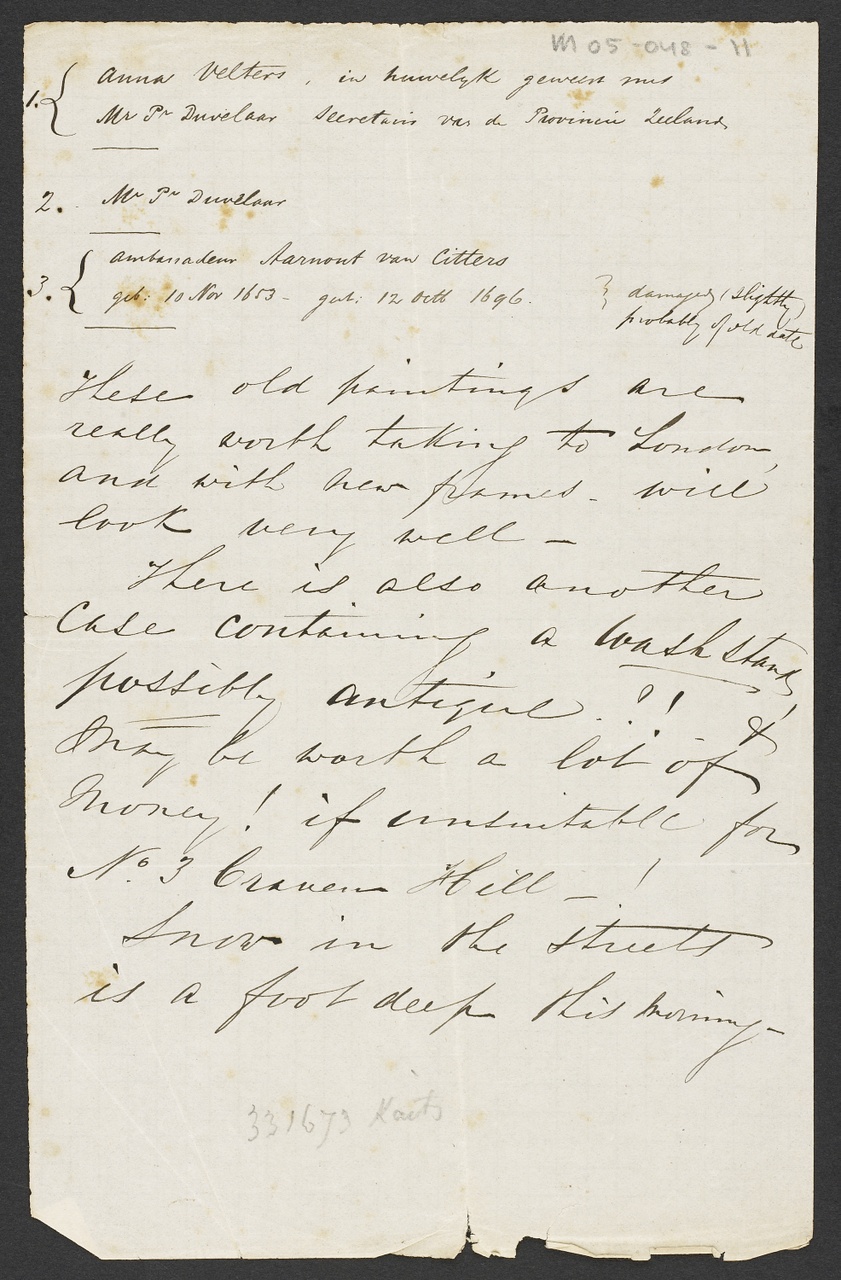 M 05-048-H
1. { Anna Velters, in huwelyk geweest met
Mr Pr Duvelaar Secretaris van de Provincie Zeeland
2. Mr Pr Duvelaar
3. { Ambassadeur Aarnout van Citters
geb: 10 Nov 1653 - gest: 12 Octb 1696. } damaged (slightly)
probably of old date
These old paintings are
really worth taking to London,
and with new frames - will
look very well -
There is also another
case containing a wash stand,
possibly antique..?! &
May be worth a lot of
Money! if unsuitable for
No. 3 Craven Hill - !
Snow in the streets
is a foot deep this morning -
331673